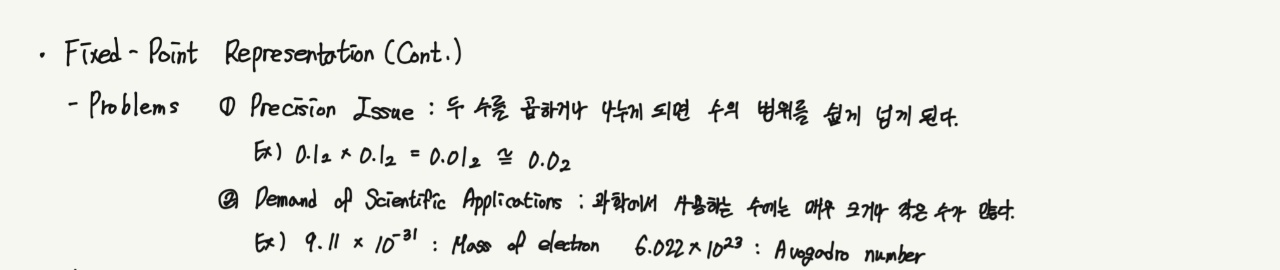 · Fixed-Point Representation (Cont.)
- Problems ① Precision Issue : 두 수를 곱하거나 나누게 되면 수의 범위를 쉽게 넘게 된다.
Ex) 0.1₂ × 0.1₂ = 0.01₂ ≅ 0.0₂
② Demand of Scientific Applications : 과학에서 사용하는 수에는 매우 크거나 작은 수가 많다.
Ex) 9.11 × 10⁻³¹ : Mass of electron 6.022 × 10²³ : Avogadro number